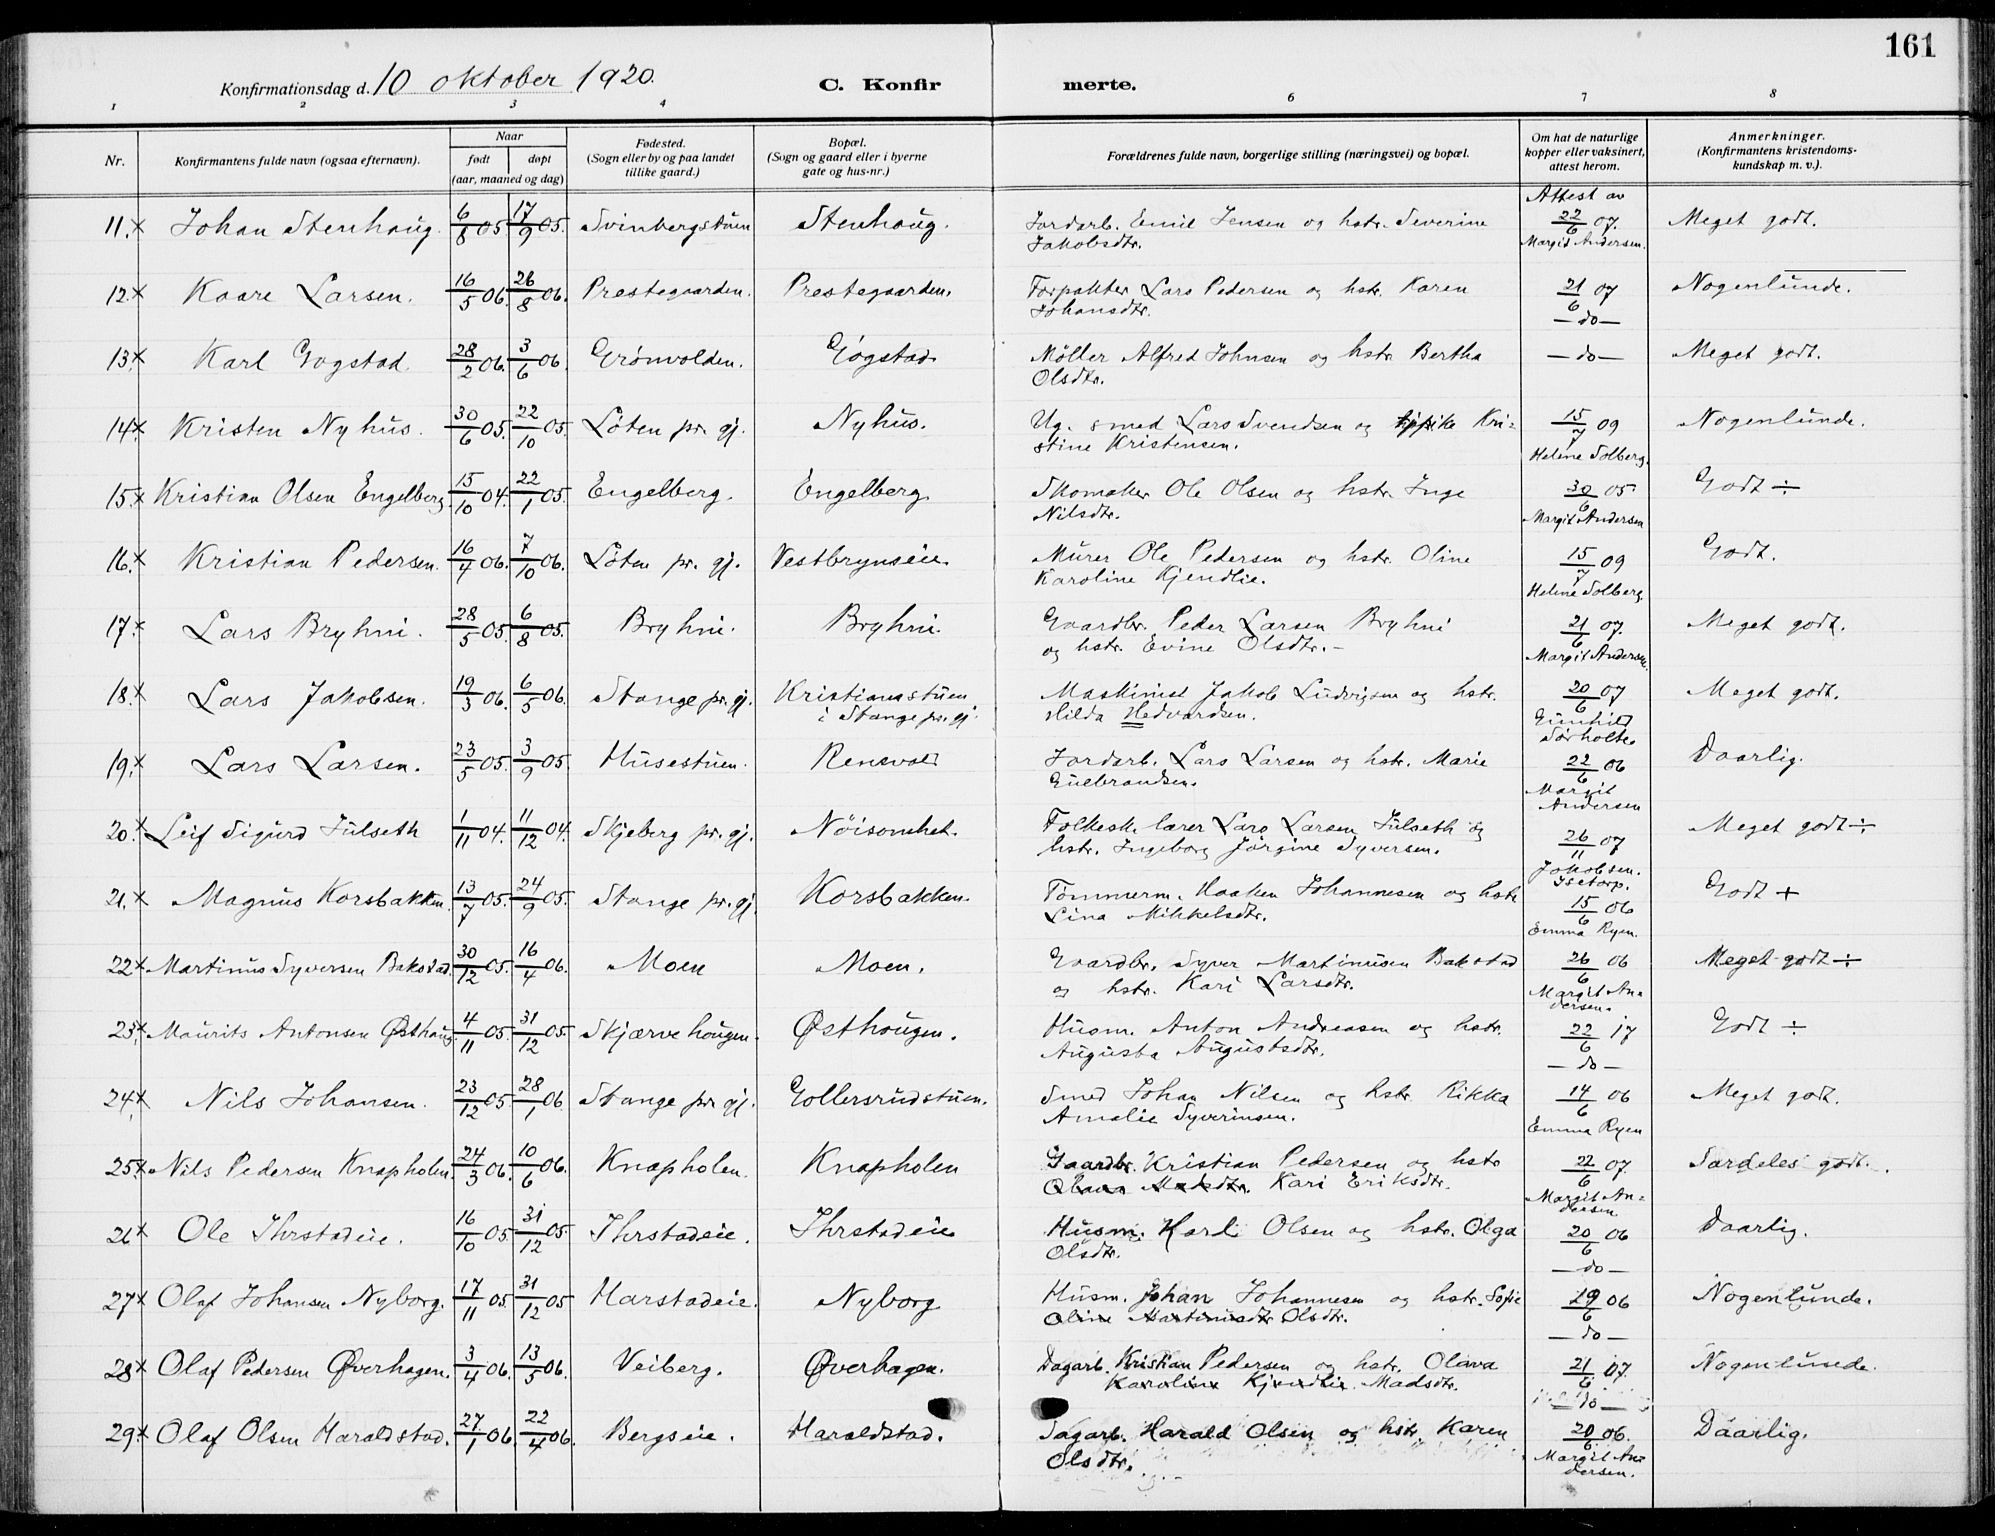 161
Konfirmationsdag d. 10 oktober 1920. C. Konfirmerte.
1 2 3 4 6 7 8
Nr. Konfirmantens fulde navn (ogsaa efternavn). Naar født døpt (aar, maaned og dag) Fødested. (Sogn eller by og paa landet tillike gaard.) Bopæl. (Sogn og gaard eller i byerne gate og hus-nr.) Forældrenes fulde navn, borgerlige stilling (næringsvei) og bopæl. Om hat de naturlige kopper eller vaksinert, attest herom. Anmerkninger. (Konfirmantens kristendomskundskap m. v.).
Attest av
11. x Johan Stenhaug. 6/8 05 17/9 05. Svinbergstuen Stenhaug. Jordarb. Emil Jensen og hstr. Severine 22/6 07. Meget godt.
Jakobsdtr. Margit Andersen.
12. x Kaare Larsen. 16/5 06. 26/8 06. Prestegaarden. Prestegaarden. Forpakter Lars Pedersen og hstr. Karen 21/6 07 Nogenlunde.
Johansdtr. — do —
13. x Karl Gogstad. 28/2 06. 3/6 06. Grønvolden. Gogstad. Møller Alfred Johnsen og hstr. Bertha — do — Meget godt.
Olsdtr.
14. x Kristen Nyhus. 30/6 05. 22/10 05. Löten pr. gj. Nyhus. Ug. smed Lars Svendsen og pike Kri= 15/7 09 Nogenlunde.
stine Kristensen. Helene Solberg.
15. x Kristian Olsen Engelberg. 15/10 04. 22/1 05. Engelberg. Engelberg. Skomaker Ole Olsen og hstr. Inge 30/6 05 Godt ÷
Nilsdtr. Margit Andersen
16. x Kristian Pedersen. 16/4 06. 7/10 06. Löten pr. gj. Vestbrynseie. Murer Ole Pedersen og hstr. Oline 15/7 09 Godt.
Karoline Kjendlie. Helene Solberg
17. x Lars Bryhni. 28/5 05. 6/8 05. Bryhni. Bryhni. Gaardbr. Peder Larsen Bryhni 21/6 07. Meget godt.
og hstr. Evine Olsdtr. – Margit Andersen.
18. x Lars Jakobsen. 19/3 06. 6/5 06. Stange pr. gj. Kristianastuen Maskinist Jakob Ludvigsen og hstr. 20/6 07 Meget godt.
i Stange pr. gj. Hilda Hedvardsen. Gunhild Sørholte.
19. x Lars Larsen. 23/5 05. 3/9 05. Husestuen. Rensvold Jordarb. Lars Larsen og hstr. Marie 22/6 06 Daarlig.
Gulbrandsen. Margit Andersen
20. x Leif Sigurd Julseth 1/11 04. 11/12 04. Skjeberg pr. gj. Nöisomhet. Folkesk. lærer Lars Larsen Julseth og 26/11 07 Meget godt ÷
hstr. Ingeborg Jørgine Syversen. Jakobsen.
21. x Magnus Korsbakken. 13/7 05. 24/9 05. Stange pr. gj. Korsbakken. Tømmerm. Haaken Johannesen og hstr. 15/6 06 Godt +
Lina Mikkelsdtr. Emma Ryen.
22. x Martinus Syversen Bakstad. 30/12 05. 16/4 06. Moen Moen. Gaardbr. Syver Martinusen Bakstad 26/6 06 Meget godt ÷
og hstr. Kari Larsdtr. Margit An=dersen.
23. x Maurits Antonsen Østhaug. 4/11 05. 31/12 05. Skjærvehougen. Østhougen. Husm. Anton Andreasen og hstr. 22/6 17 Godt ÷
Augusta Augustsdtr. — do —
24. x Nils Johansen. 23/12 05. 28/1 06 Stange pr. gj. Gollersrudstuen. Smed Johan Nilsen og hstr. Rikka 14/6 06 Meget godt.
Amalie Syverinsen. Emma Ryen
25. x Nils Pedersen Knapholen. 24/3 06. 10/6 06. Knapholen. Knapholen Gaardbr. Kristian Pedersen og hstr 22/6 07. Særdeles godt.
Olava Madsdtr. Kari Eriksdtr. Margit An=dersen
26. x Ole Ihrstadeie. 16/10 05. 31/12 05. Ihrstadeie. Ihrstadeie Husm. Karl Olsen og hstr. Olga 20/6 06 Daarlig.
Olsdtr. — do —
27. x Olaf Johansen Nyborg. 17/11 05. 31/12 05 Harstadeie. Nyborg Husm. Johan Johannesen og hstr. Sofie 29/6 06 Nogenlunde.
Oline Martinusdtr Olsdtr. — do —
28. x Olaf Pedersen Øverhagen. 3/4 06. 13/5 06. Veiberg. Øverhagen. Dagarb. Kristian Pedersen og hstr. Olava 21/6 07. Nogenlunde.
Karoline Kjendlie. Madsdtr. — do —
29. x Olaf Olsen Haraldstad. 27/1 06. 22/4 06. Bergseie. Haraldstad. Sagarb. Harald Olsen og hstr. Karen 20/6 06. Daarlig.
Olsdtr. Margit An=dersen.